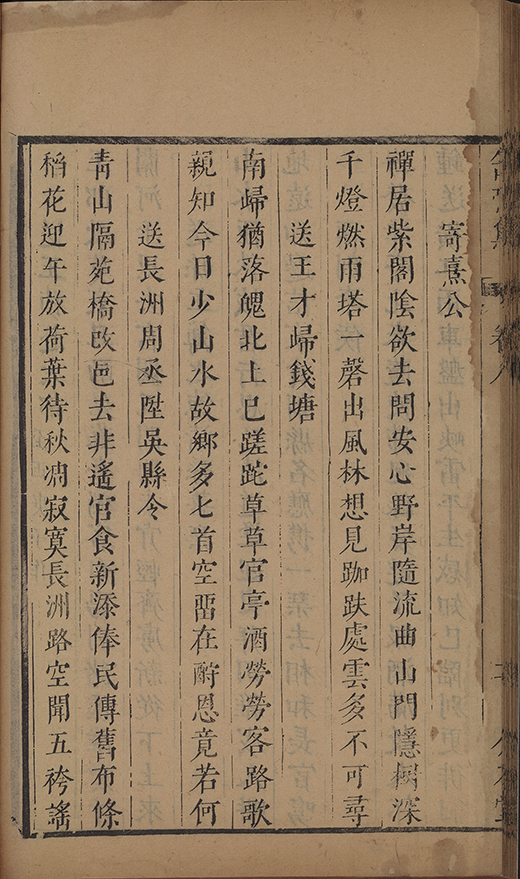 寄熹公
禪居紫閣陰欲去問安心野岸隨流曲山門隱樹深
千燈燃雨塔一磬出風林想見跏趺處雲多不可尋
送王才歸錢塘
南歸猶落魄北上已蹉跎草草官亭酒勞勞客路歌
親知今日少山水故鄉多匕首空畱在酧恩竟若何
送長洲周丞陞吳縣令
青山隔苑橋改邑去非遙官食新添俸民傳舊布條
稻花迎午放荷葉待秋凋寂寞長洲路空聞五袴謠